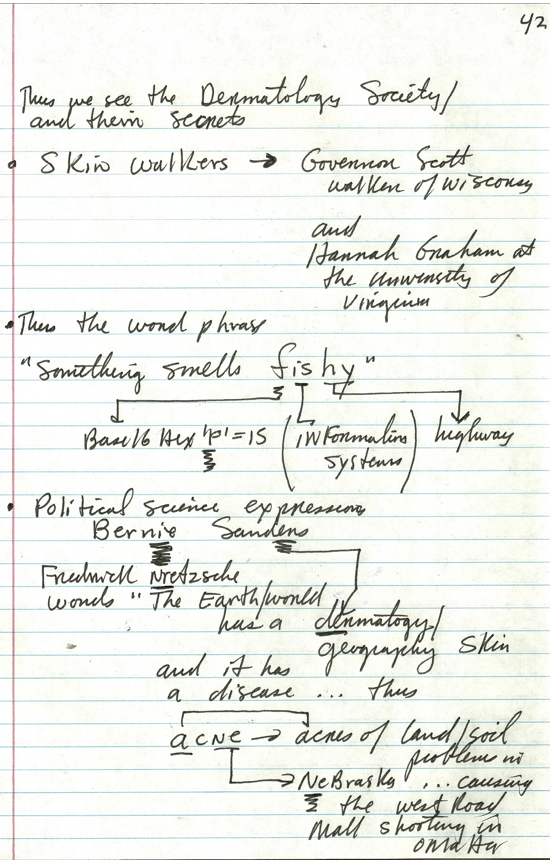 42
Thus we see the Dermatology Society/
and their secrets
• Skin walkers → Governor Scott
walker of wisconsin
and
Hannah Graham at
the university of
Virginia
• Thus the word phrase
"Something smells fishy"
Base 16 Hex 'F' = 15 (INFormation systems) highway
• Political science expression
Bernie Sanders
Fredrick Nietzsche
words "The Earth/world
has a dermatogy/
geography skin
and it has
a disease ... thus
acne → acres of land/soil
problems in
NeBraska ... causing
the west Road
Mall shooting in
omaha